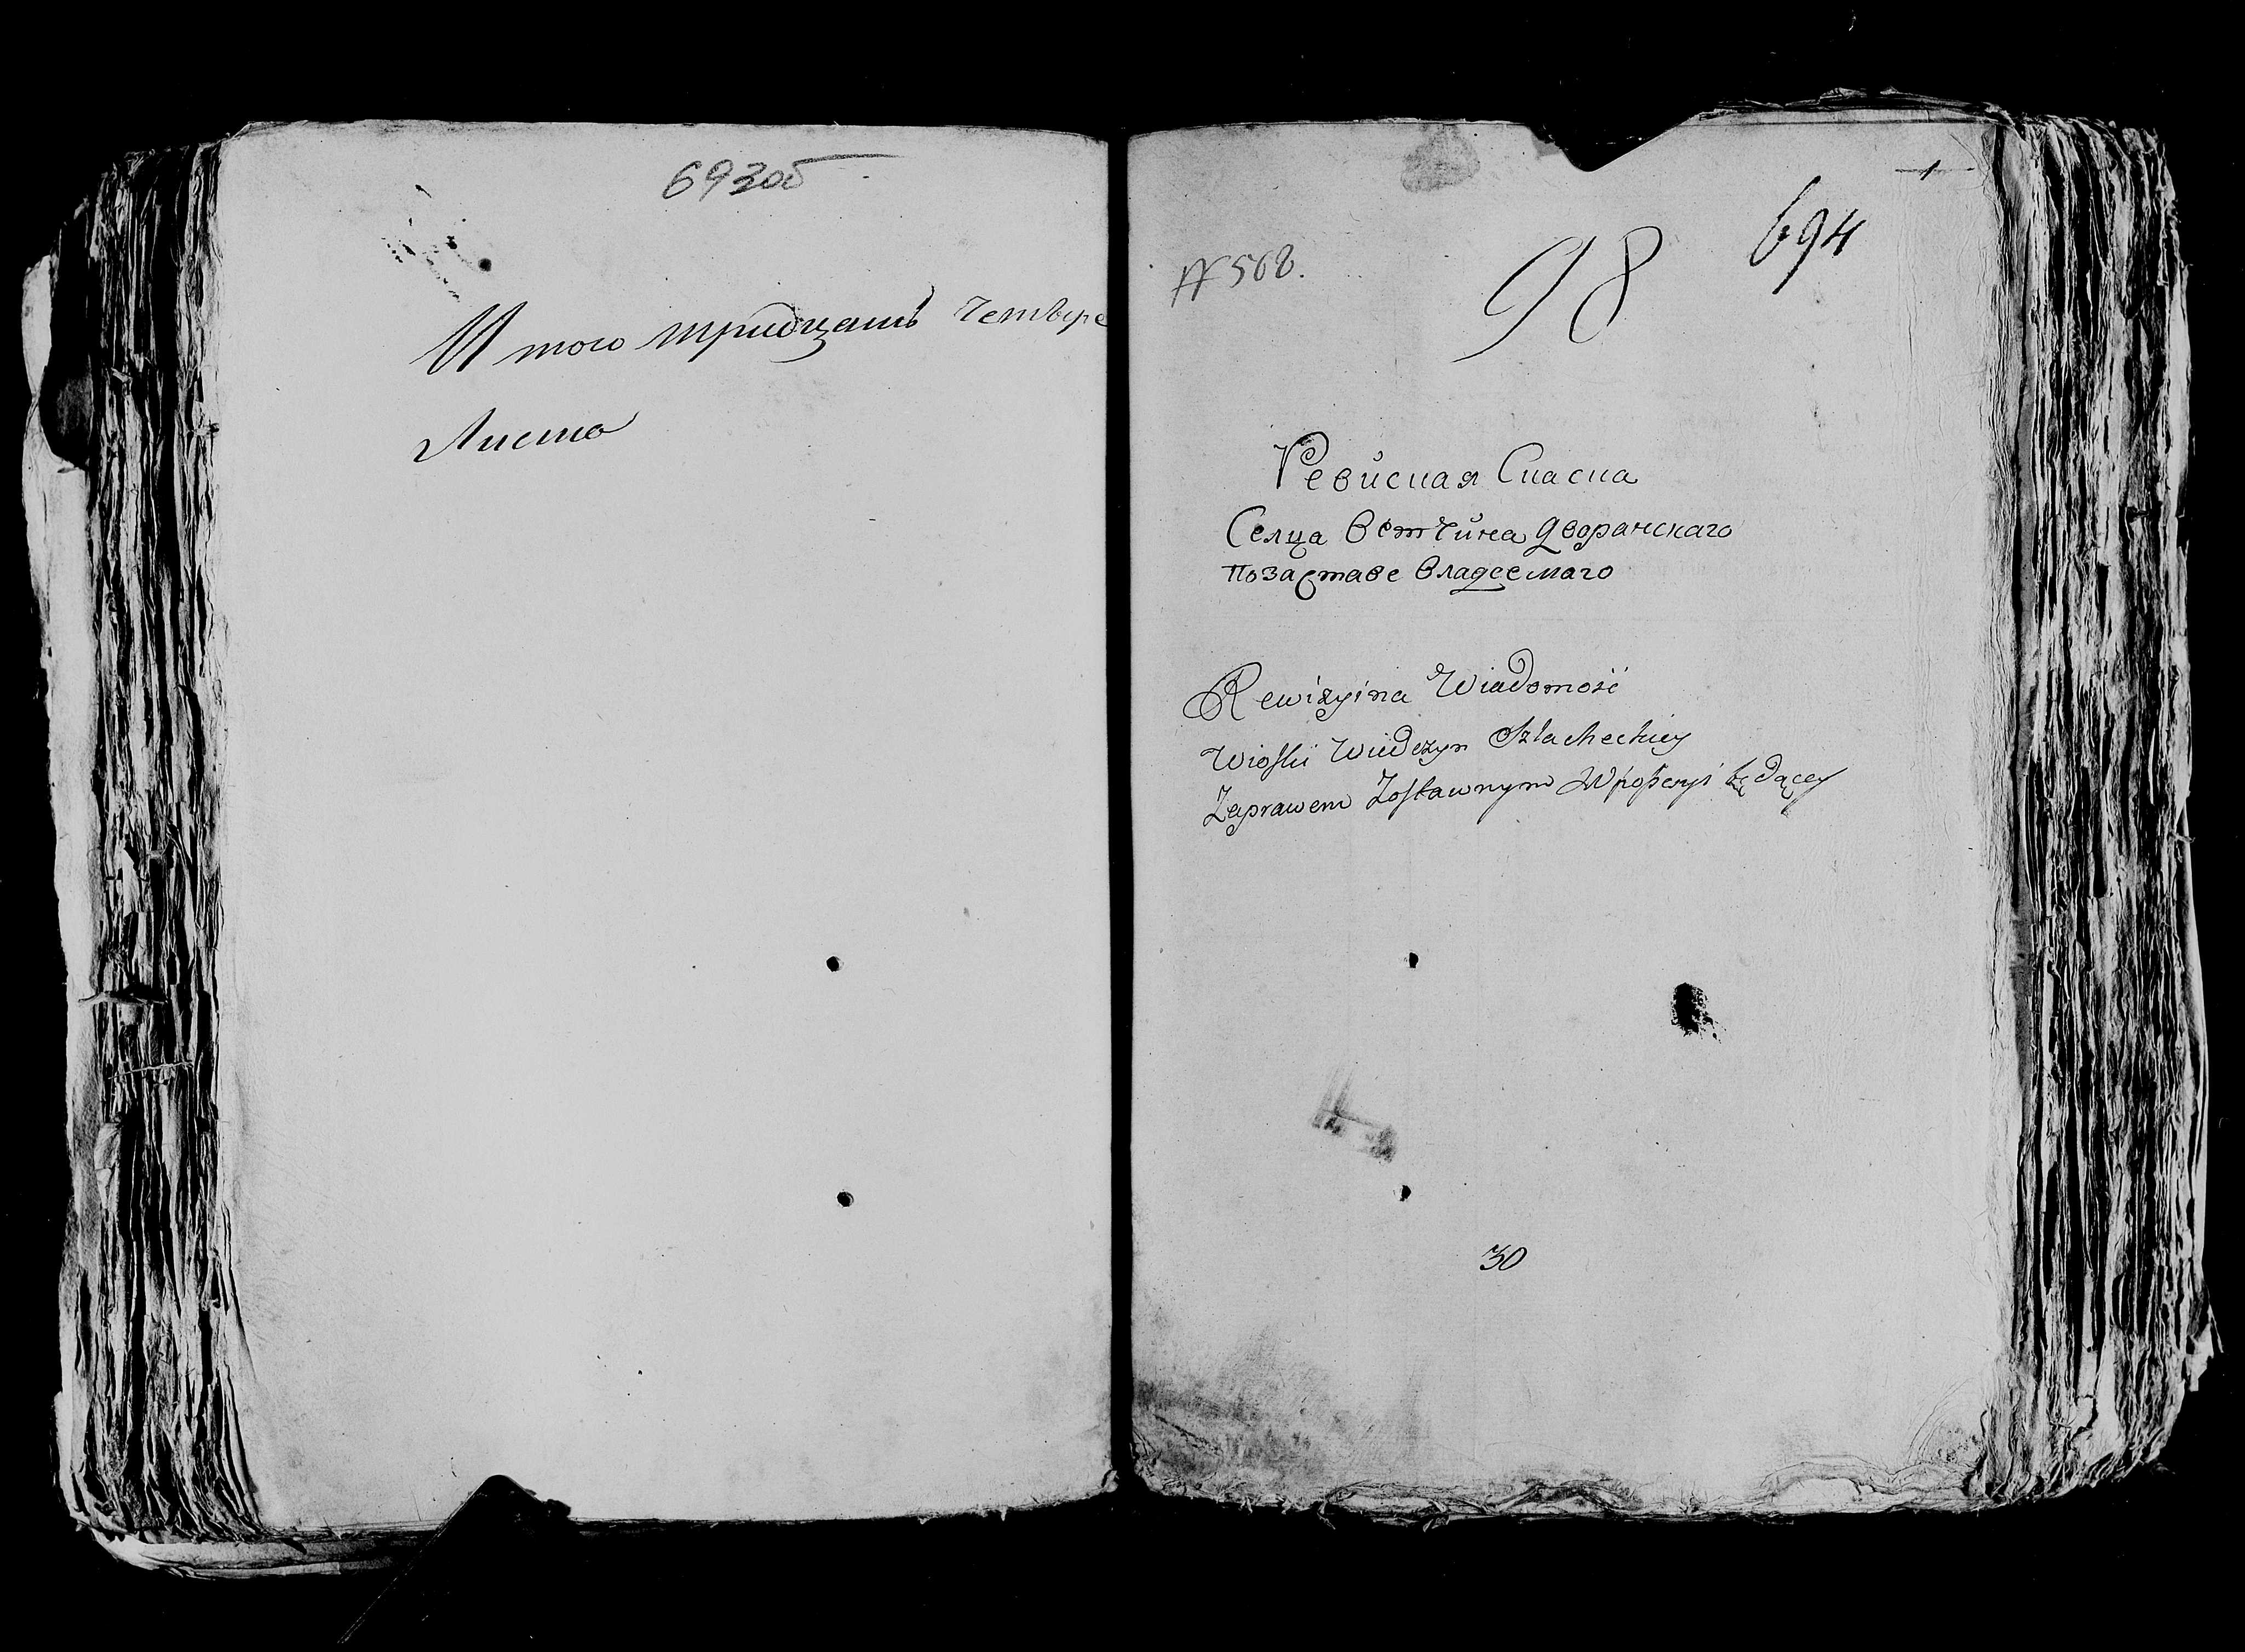 693об
Итого тридцать четыре
Листа
1
694
98
№ 568.
Ревиская Скаска
Селца Ветчина дворанскаго
позаставе владеемаго
Rewizyina Wiadomość
Wioski Wiedczyn Szlacheckiey
Zaprawem Zostawnym Wpossesyi będącey
30